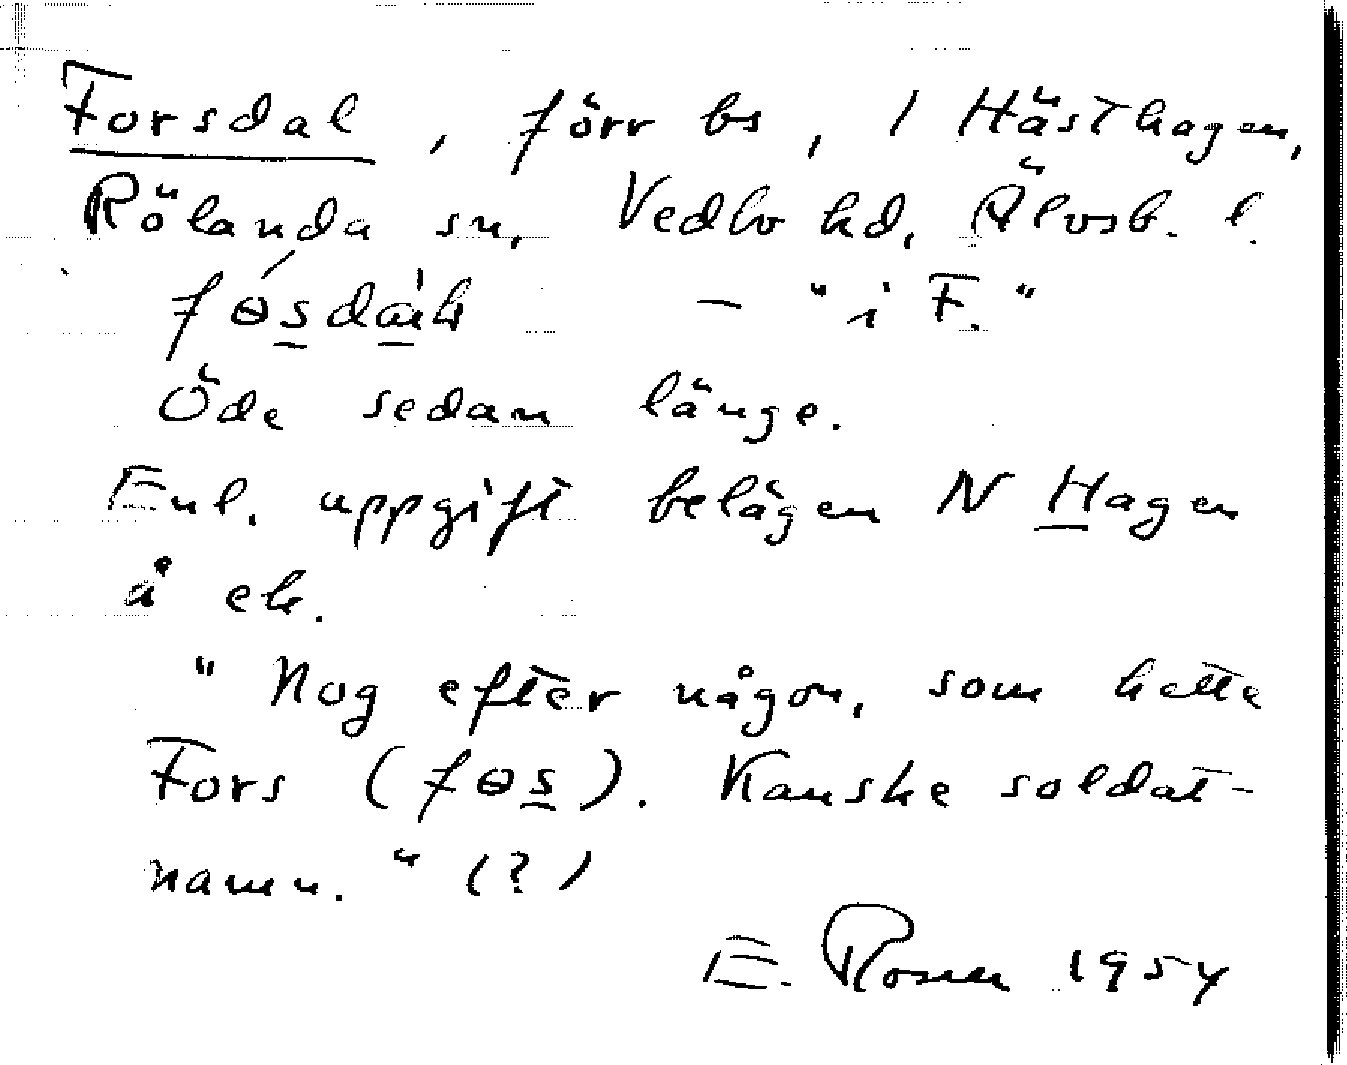 Forsdal, förr bs, 1 Hästhagen,
Rölanda sn, Vedbo hd, Älvsb. l.
– "i F."
Öde sedan länge.
Enl. uppgift belägen N Hagen
å ek.
"Nog efter någon, som hette
Fors (fɵs). Kanske soldat-
namn." (?)
E. Rosén 1954